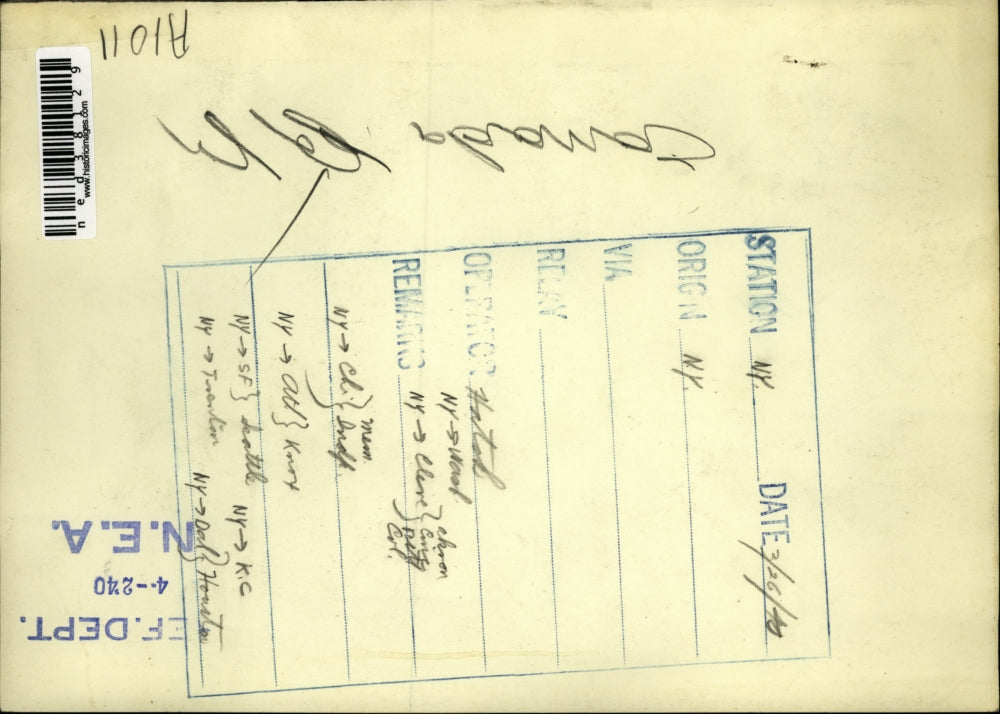 A1011
ned38129
www.historicimages.com
Canada
STATION NY DATE 2/26/40
ORIGIN NY
VIA
RELAY
OPERATOR Hatch
REMARKS NY → Wash
NY → Cleve } Akron Cinci Pitt Col.
NY → Chi } Mem. Indp
NY → Atl } Knox
NY → SF } Seattle NY → KC
NY → Trenton NY → Dal } Houston
N.E.A.
4--240
EF. DEPT.